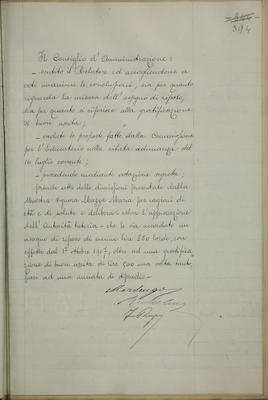 394
Il Consiglio d'Amministrazione:
– sentito il Relatore ed accogliendone a
voti unanimi le conclusioni, sia per quanto
riguarda la misura dell'assegno di riposo,
sia per quanto si riferisce alla gratificazione
di buon uscita;
– vedute le proposte fatte dalla Commissione
per l'Educatorio nella citata adunanza del
16 luglio corrente;
– procedendo mediante votazione segreta;
prende atto delle dimissioni presentate dalla
Maestra Maria per ragioni di
età e di salute e delibera salva l'approvazione
dell'Autorità tutoria – che le sia accordato un
assegno di riposo di annue lire 250 lorde, con
effetto dal 1° ottobre 1907, oltre ad una gratifica
zione di buon uscita di lire 500 una volta tanto,
pari ad una annata di stipendio –